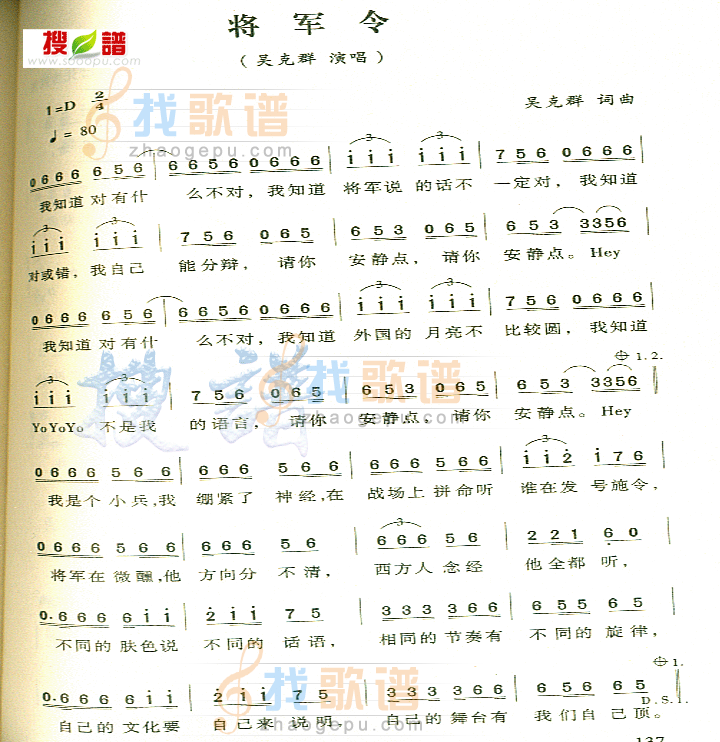 将 军 令
搜谱
www.sooopu.com
（吴克群 演唱）
1=D 2/4
吴克群 词曲
♩= 80
找歌谱
zhaogepu.com
0666 656 | 66560666 | iii iii | 756 0666 |
我知道 对有什 么不对，我知道 将军说 的话不 一定对，我知道
iii iii | 756 065 | 653 065 | 653 3356 |
对或错，我自己 能分辩， 请你 安静点，请你 安静点。Hey
0666 656 | 66560666 | iii iii | 756 0666 |
我知道 对有什 么不对，我知道 外国的 月亮不 比较圆，我知道
1.2.
iii iii | 756 065 | 653 065 | 653 3356 |
YoYoYo 不是我 的语言， 请你 安静点，请你 安静点。Hey
0666 566 | 666 566 | 666 566 | ii2 i76 |
我是个 小兵,我 绷紧了 神经,在 战场上 拼命听 谁在发 号施令，
0666 566 | 666 566 | 666 566 | 221 60 |
将军在 微醺,他 方向分 不清， 西方人 念经 他全都 听，
0·666 6ii | 2ii 75 | 333 366 | 655 65 |
不同的 肤色说 不同的 话语， 相同的 节奏有 不同的 旋律，
1.
0·666 6ii | 2ii 75 | 333 666 | 656 65 |
D.S.1.
自己的 文化要 自己来 说明， 自己的 舞台有 我们自 己顶。
137